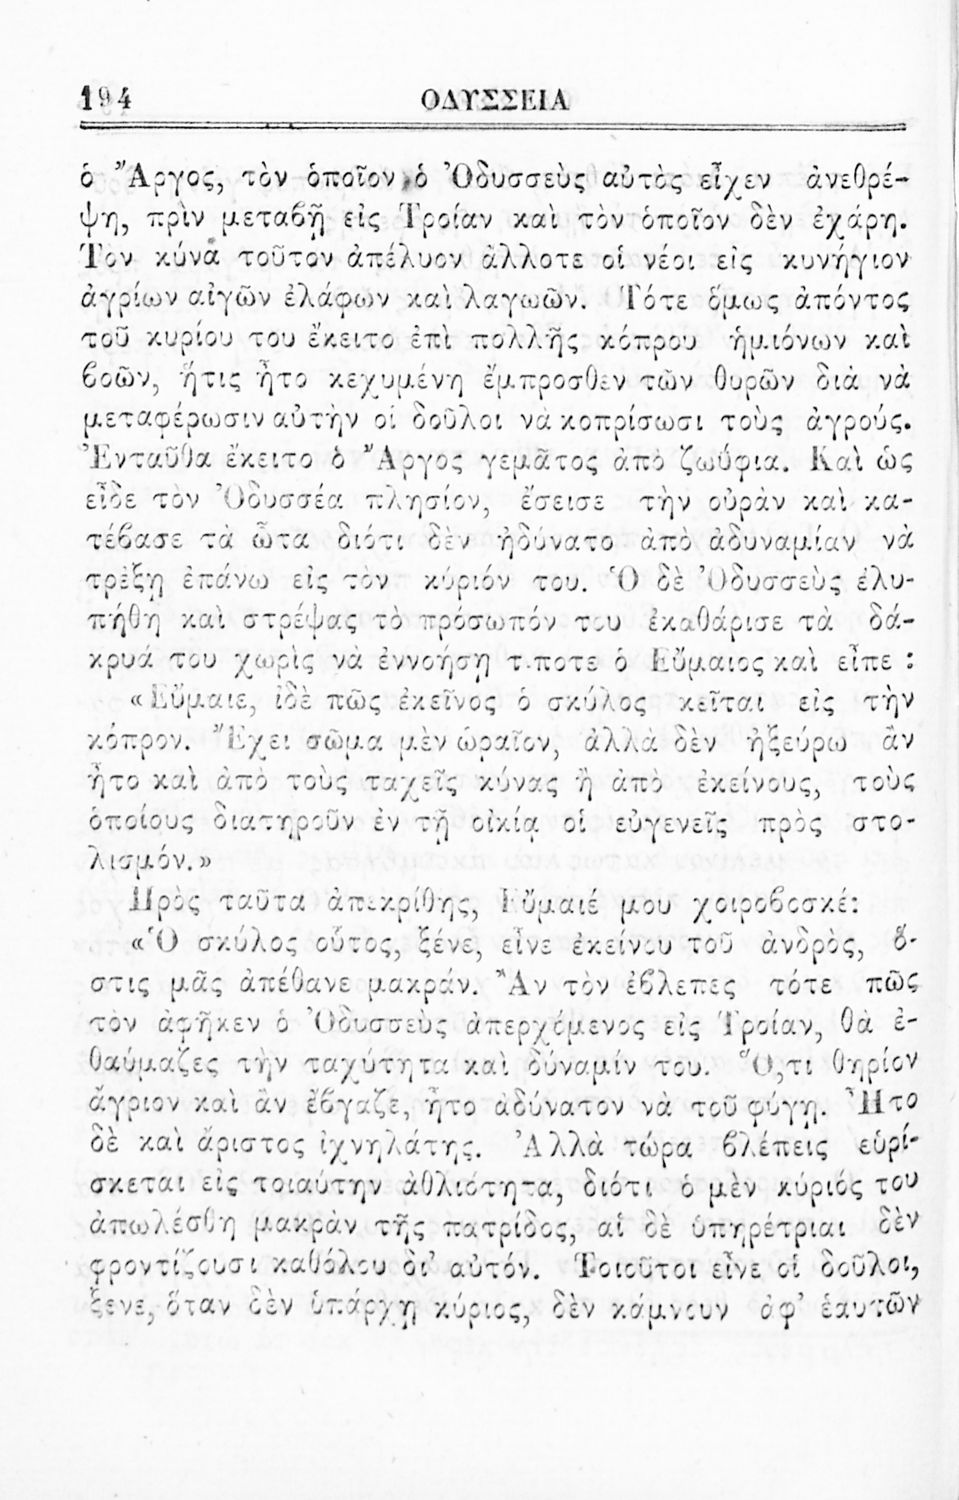 194 ΟΔΥΣΣΕΙΑ
ὁ Ἄργος, τὸν ὁποῖον ὁ Ὀδυσσεὺς αὐτὸς εἶχεν ἀνεθρέ-
ψη, πρὶν μεταβῇ εἰς Τροίαν καὶ τὸν ὁποῖον δὲν ἐχάρη.
Τὸν κύνα τοῦτον ἀπέλυον ἄλλοτε οἱ νέοι εἰς κυνήγιον
ἀγρίων αἰγῶν ἐλάφων καὶ λαγωῶν. Τότε ὅμως ἀπόντος
τοῦ κυρίου του ἔκειτο ἐπὶ πολλῆς κόπρου ἡμιόνων καὶ
βοῶν, ἥτις ἦτο κεχυμένη ἔμπροσθεν τῶν θυρῶν διὰ νὰ
μεταφέρωσιν αὐτὴν οἱ δοῦλοι νὰ κοπρίσωσι τοὺς ἀγρούς.
Ἐνταῦθα ἔκειτο ὁ Ἄργος γεμᾶτος ἀπὸ ζωύφια. Καὶ ὡς
εἶδε τὸν Ὀδυσσέα πλησίον, ἔσεισε τὴν οὐρὰν καὶ κα-
τέβασε τὰ ὦτα διότι δὲν ἠδύνατο ἀπὸ ἀδυναμίαν νὰ
τρέξῃ ἐπάνω εἰς τὸν κύριόν του. Ὁ δὲ Ὀδυσσεὺς ἐλυ-
πήθη καὶ στρέψας τὸ πρόσωπόν του ἐκαθάρισε τὰ δά-
κρυά του χωρὶς νὰ ἐννοήσῃ τίποτε ὁ Εὔμαιος καὶ εἶπε :
«Εὔμαιε, ἰδὲ πῶς ἐκεῖνος ὁ σκύλος κεῖται εἰς τὴν
κόπρον. Ἔχει σῶμα μὲν ὡραῖον, ἀλλὰ δὲν ἠξεύρω ἂν
ἦτο καὶ ἀπὸ τοὺς ταχεῖς κύνας ἢ ἀπὸ ἐκείνους, τοὺς
ὁποίους διατηροῦν ἐν τῇ οἰκίᾳ οἱ εὐγενεῖς πρὸς στο-
λισμόν.»
Πρὸς ταῦτα ἀπεκρίθης, Εὔμαιέ μου χοιροβοσκέ:
«Ὁ σκύλος οὗτος, ξένε, εἶνε ἐκείνου τοῦ ἀνδρὸς, ὅ-
στις μᾶς ἀπέθανε μακράν. Ἂν τὸν ἔβλεπες τότε πῶς
τὸν ἀφῆκεν ὁ Ὀδυσσεὺς ἀπερχόμενος εἰς Τροίαν, θὰ ἐ-
θαύμαζες τὴν ταχύτητα καὶ δύναμίν του. Ὅ,τι θηρίον
ἄγριον καὶ ἂν ἔβγαζε, ἦτο ἀδύνατον νὰ τοῦ φύγῃ. Ἦτο
δὲ καὶ ἄριστος ἰχνηλάτης. Ἀλλὰ τώρα βλέπεις εὑρί-
σκεται εἰς τοιαύτην ἀθλιότητα, διότι ὁ μὲν κύριός του
ἀπωλέσθη μακρὰν τῆς πατρίδος, αἱ δὲ ὑπηρέτριαι δὲν
φροντίζουσι καθόλου δι' αὐτόν. Τοιοῦτοι εἶνε οἱ δοῦλοι,
ξένε, ὅταν δὲν ὑπάρχῃ κύριος, δὲν κάμνουν ἀφ' ἑαυτῶν